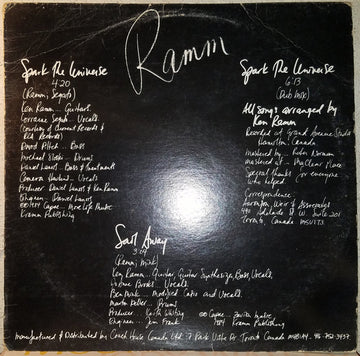 Ramm
Spark The Universe
4:20
(Ramm, Segato)
Ken Ramm... Guitars.
Lorraine Segato... Vocals.
(Courtesy of Current Records &
RCA Records)
David Piltch... Bass
Michael Sloski... Drums
Daniel Lanois... Bass & Treatments
Cameron Hawkins... Vocals
Producer Daniel Lanois & Ken Ramm
Engineer... Daniel Lanois
1984 Capac... Mine Life Music
Kramm Publishing
Spark The Universe
6:13
(Dub Mix)
All songs arranged by
Ken Ramm
Recorded at Grand Avenue Studio
Hamilton, Canada
Mastered by
mastered at
Special thanks for everyone
who helped
Correspondence
and Associates
440 Adelaide St W. Suite 201
Toronto, Canada
Sail Away
(Ramm, Mink)
Ken Ramm... Guitar, Guitar Synthesizer, Bass, Vocals.
Brooks... Vocals
Ben Mink... Modified Calls and Vocals.
Martin Deller... Drums
Producer... Keith Whiting
Engineer... Jim Frank
Capac
1984 Kramm Publishing
Manufactured & Distributed by Coach House Canada Ltd. 7 Park Toronto Canada